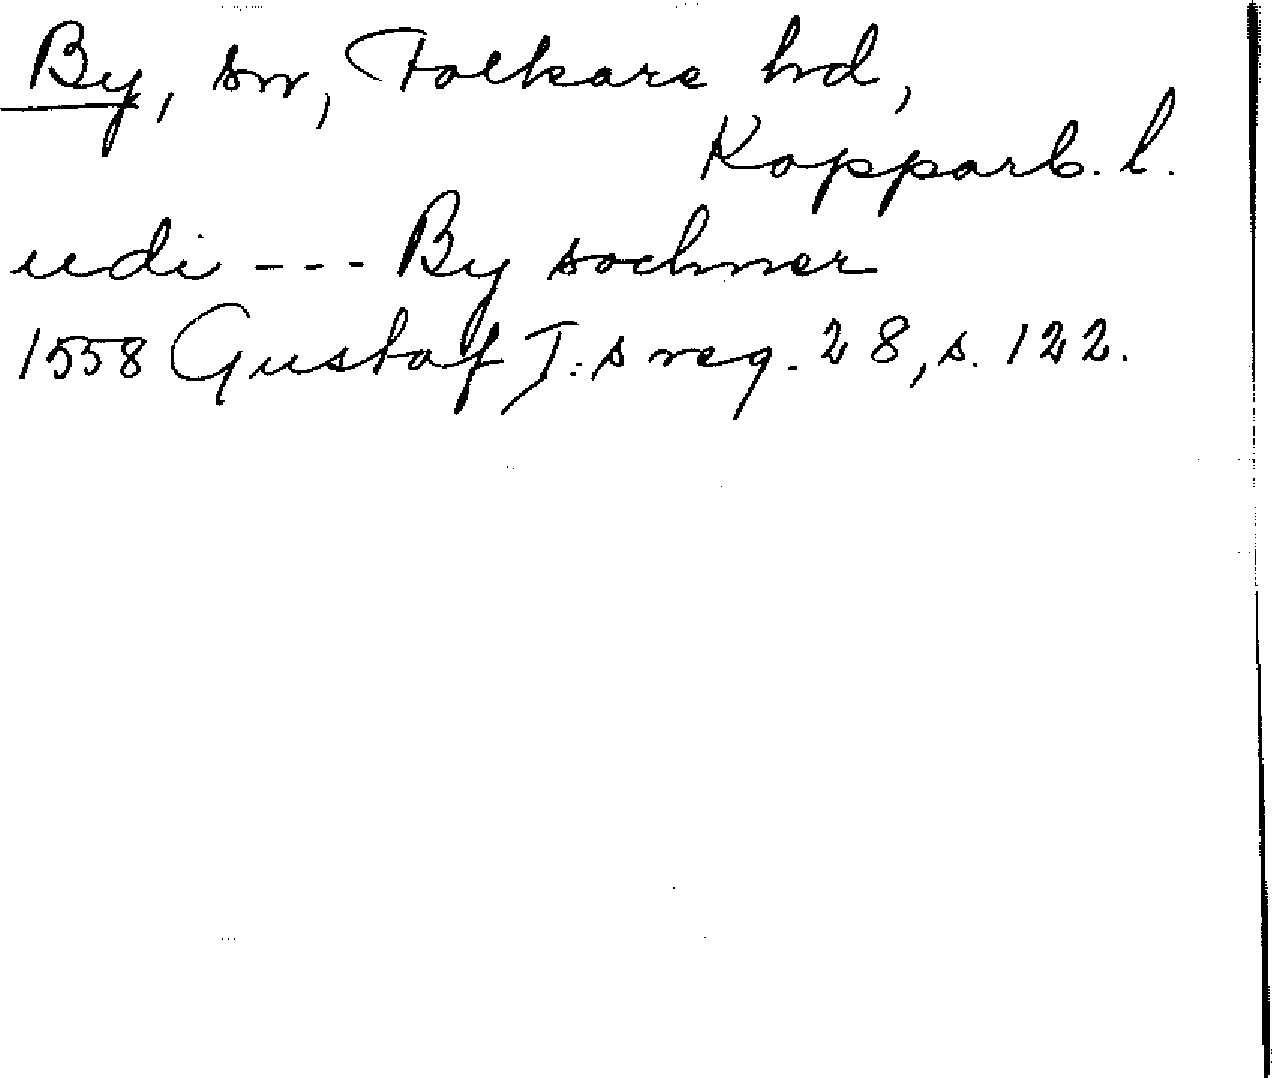 By, sn, Folkare hd,
Kopparb. l.
udi --- By sochner
1558 Gustaf I:s reg. 28, s. 122.